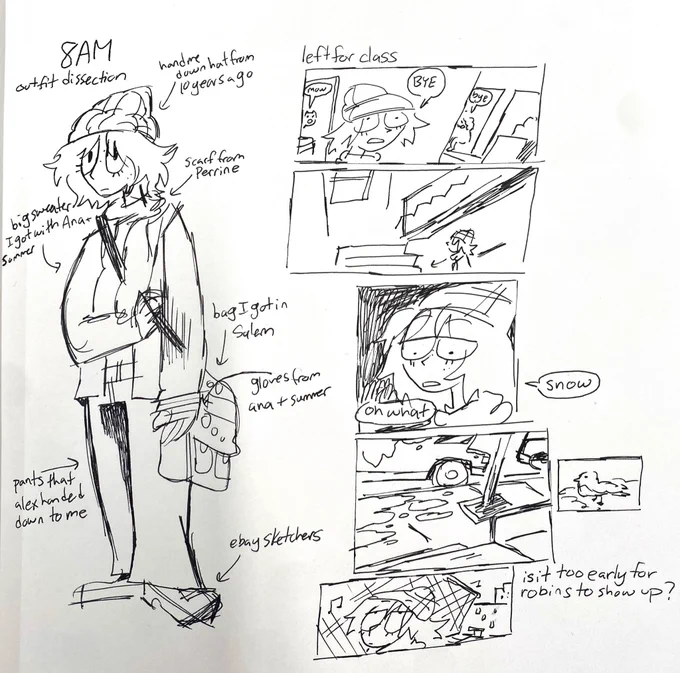 8AM
outfit dissection
hand me
down hat from
10 years ago
scarf from
Perrine
big sweater
I got with Ana +
Summer
bag I got in
Salem
gloves from
ana + summer
pants that
alex handed
down to me
ebay sketchers
left for class
mow
BYE
bye
oh what
snow
is it too early for
robins to show up?